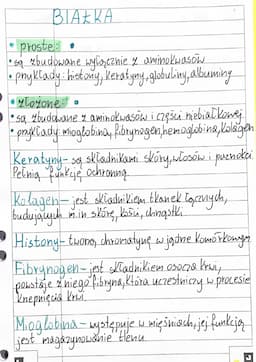 BIAŁKA
• proste:
• są zbudowane wyłącznie z aminokwasów
• przykłady: histony, keratyny, globuliny, albuminy
• złożone:
• są zbudowane z aminokwasów i części niebiałkowej
• przykłady: mioglobina, fibrynogen, hemoglobina, kolagen
Keratyny- są składnikami skóry, włosów i paznokci
Pełnią funkcję ochronną.
Kolagen- jest składnikiem tkanek łącznych,
budujących m.in skórę, kości, chrząstki
Histony- tworzą chromatynę w jądrze komórkowym
Fibrynogen- jest składnikiem osocza krwi,
powstaje z niego fibryna, która uczestniczy w procesie
krzepnięcia krwi.
Mioglobina- występuje w mięśniach, jej funkcją
jest magazynowanie tlenu.